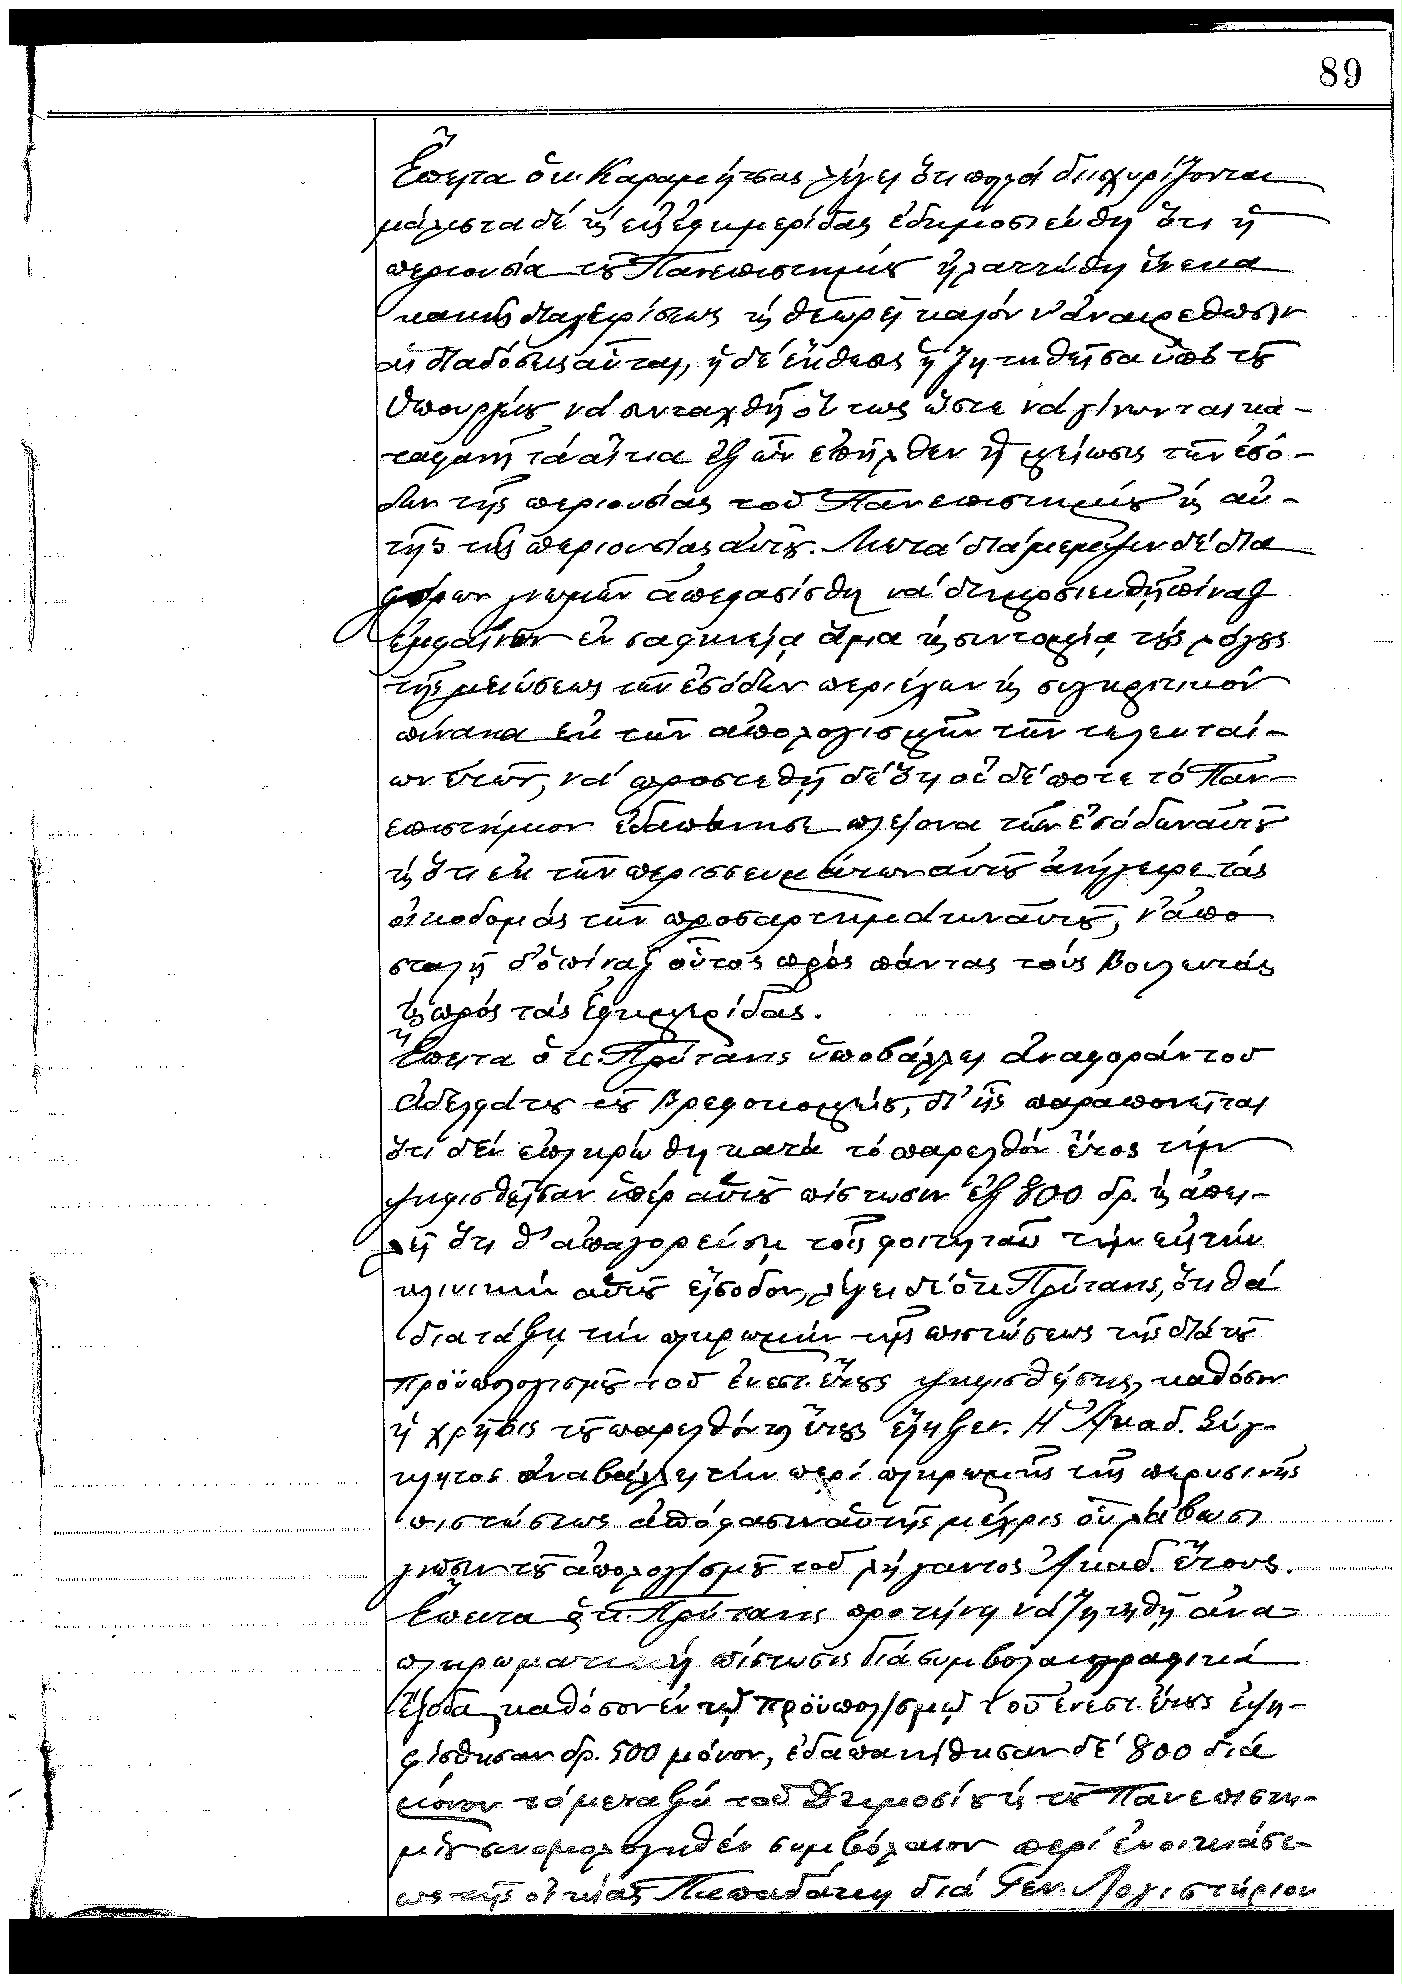 89
Ἔπειτα ὁ κ. Καραμήτσας λέγει ὅτι πολλά διισχυρίζονται
μάλιστα δέ καί εἰς ἐφημερίδας ἐδημοσιεύθη ὅτι ἡ
περιουσία τοῦ Πανεπιστημίου ἠλαττώθη ἕνεκα
κακῆς διαχειρίσεως καί θεωρεῖ καλόν ν' ἀναιρεθῶσιν
αἱ διαδόσεις αὗται, ἡ δέ ἔκθεσις ἡ ζητηθεῖσα ὑπό τοῦ
Ὑπουργείου νά συνταχθῇ οὕτως ὥστε νά γίνωνται κα-
ταφανῆ τά αἴτια ἐξ ὧν ἐπῆλθεν ἡ μείωσις τῶν ἐσό-
δων τῆς περιουσίας τοῦ Πανεπιστημίου καί αὐ-
τῆς τῆς περιουσίας αὐτοῦ. Μετά διαμειψιν δέ δια
φόρων γνωμῶν ἀπεφασίσθη νά δημοσιευθῇ πίναξ
ἐμφαίνων ἐν σαφηνείᾳ ἅμα καί συντομίᾳ τούς λόγους
τῆς μειώσεως τῶν ἐσόδων περιέχων καί συγκριτικόν
πίνακα ἐκ τῶν ἀπολογισμῶν τῶν τελευταί-
ων ἐτῶν, νά προστεθῇ δέ ὅτι οὐδέποτε τό Παν-
επιστήμιον ἐδαπάνησε πλείονα τῶν ἐσόδων αὐτοῦ
καί ὅτι ἐκ τῶν περισσευμάτων αὐτοῦ ἀνήγειρε τάς
οἰκοδομάς τῶν προσαρτημάτων αὐτοῦ, ν' ἀπο
σταλῇ δ' ὁ πίναξ οὗτος πρός πάντας τούς Βουλευτάς
καί πρός τάς Ἐφημερίδας.
Ἔπειτα ὁ κ. Πρύτανις ὑποβάλλει ἀναφοράν τοῦ
Ἀδελφάτου τοῦ Βρεφοκομείου, δι' ἧς παραπονεῖται
ὅτι δέν ἐπληρώθη κατά τό παρελθόν ἔτος τήν
ψηφισθεῖσαν ὑπέρ αὐτοῦ πίστωσιν ἐξ 800 δρ. καί ἀπει-
λεῖ ὅτι θ' ἀπαγορεύσῃ τοῖς φοιτηταῖς τήν εἰς τήν
κλινικήν αὐτοῦ εἴσοδον, λέγει δέ ὁ κ. Πρύτανις, ὅτι θά
διατάξῃ τήν πληρωμήν τῆς πιστώσεως τῆς διά τοῦ
προϋπολογισμοῦ τοῦ ἐνεστ. ἔτους ψηφισθείσης, καθόσον
ἡ χρῆσις τοῦ παρελθόντος ἔτους ἔληξεν. Ἡ Ἀκαδ. Σύγ-
κλητος ἀναβάλλει τήν περί πληρωμῆς τῆς περυσινῆς
πιστώσεως ἀπόφασιν αὐτῆς μέχρις οὗ λάβωσι
γνῶσιν τοῦ ἀπολογισμοῦ τοῦ λήγαντος Ἀκαδ. ἔτους.
Ἔπειτα ὁ κ. Πρύτανις προτείνει νά ζητηθῇ ἀνα-
πληρωματική πίστωσις διά συμβολαιογραφικά
ἔξοδα, καθόσον ἐν τῷ προϋπολ/σμῷ τοῦ ἐνεστ. ἔτους ἐψη-
φίσθησαν δρ. 500 μόνον, ἐδαπανήθησαν δέ 800 διά
μόνον τό μεταξύ τοῦ Δημοσίου καί τοῦ Πανεπιστη-
μίου συνομολογηθέν συμβόλαιον περί ἐνοικιάσε-
ως τῆς οἰκίας Παπαδάκη διά Γεν. Λογιστήριον